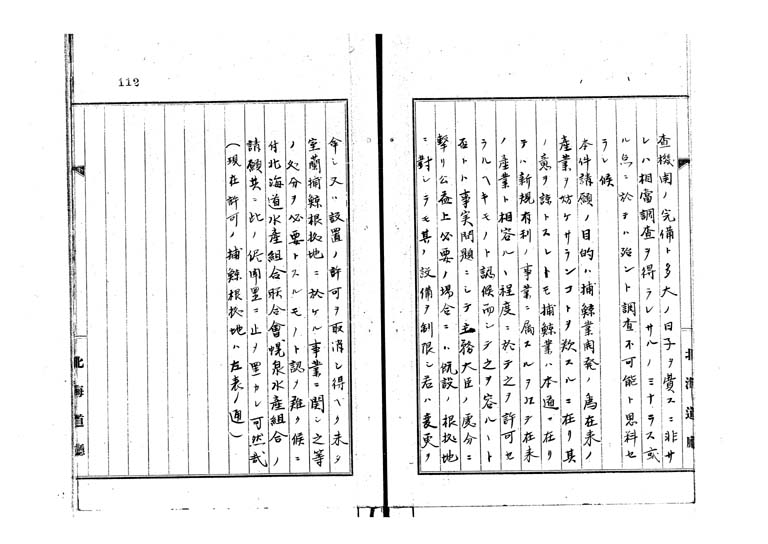 査機関ノ完備ト多大ノ日子ヲ費スニ非サ
レハ相當調査ヲ得ラレサルノミナラス或
ル点ニ於テハ殆ント調査不可能ト思料セ
ラレ候
本件請願ノ目的ハ捕鯨業開発ノ為在来ノ
産業ヲ妨ケサランコトヲ欲スルニ在リ其
ノ意ヲ諒トスレトモ捕鯨業ハ本道ニ在リ
テハ新規有利ノ事業ニ属スルヲ以テ在来
ノ産業ト相容ルヽ程度ニ於テ之ヲ許可セ
ラルヘキモノト認候而シテ之ヲ容ルヽト
否トハ事実問題ニシテ主務大臣ノ處分ニ
繋リ公益上必要ノ場合ニハ既設ノ根拠地
ニ對シテモ其ノ設備ヲ制限シ若ハ変更ヲ
命シ又ハ設置ノ許可ヲ取消シ得ヘク未タ
室蘭捕鯨根拠地ニ於ケル事業ニ関シ之等
ノ処分ヲ必要トスルモノト認メ難ク候ニ
付北海道水産組合聯合會幌泉水産組合ノ
請願共ニ此ノ侭聞置ニ止メ置カレ可然哉
(現在許可ノ捕鯨根拠地ハ左表ノ通)
北海道廳
112
北海道廳